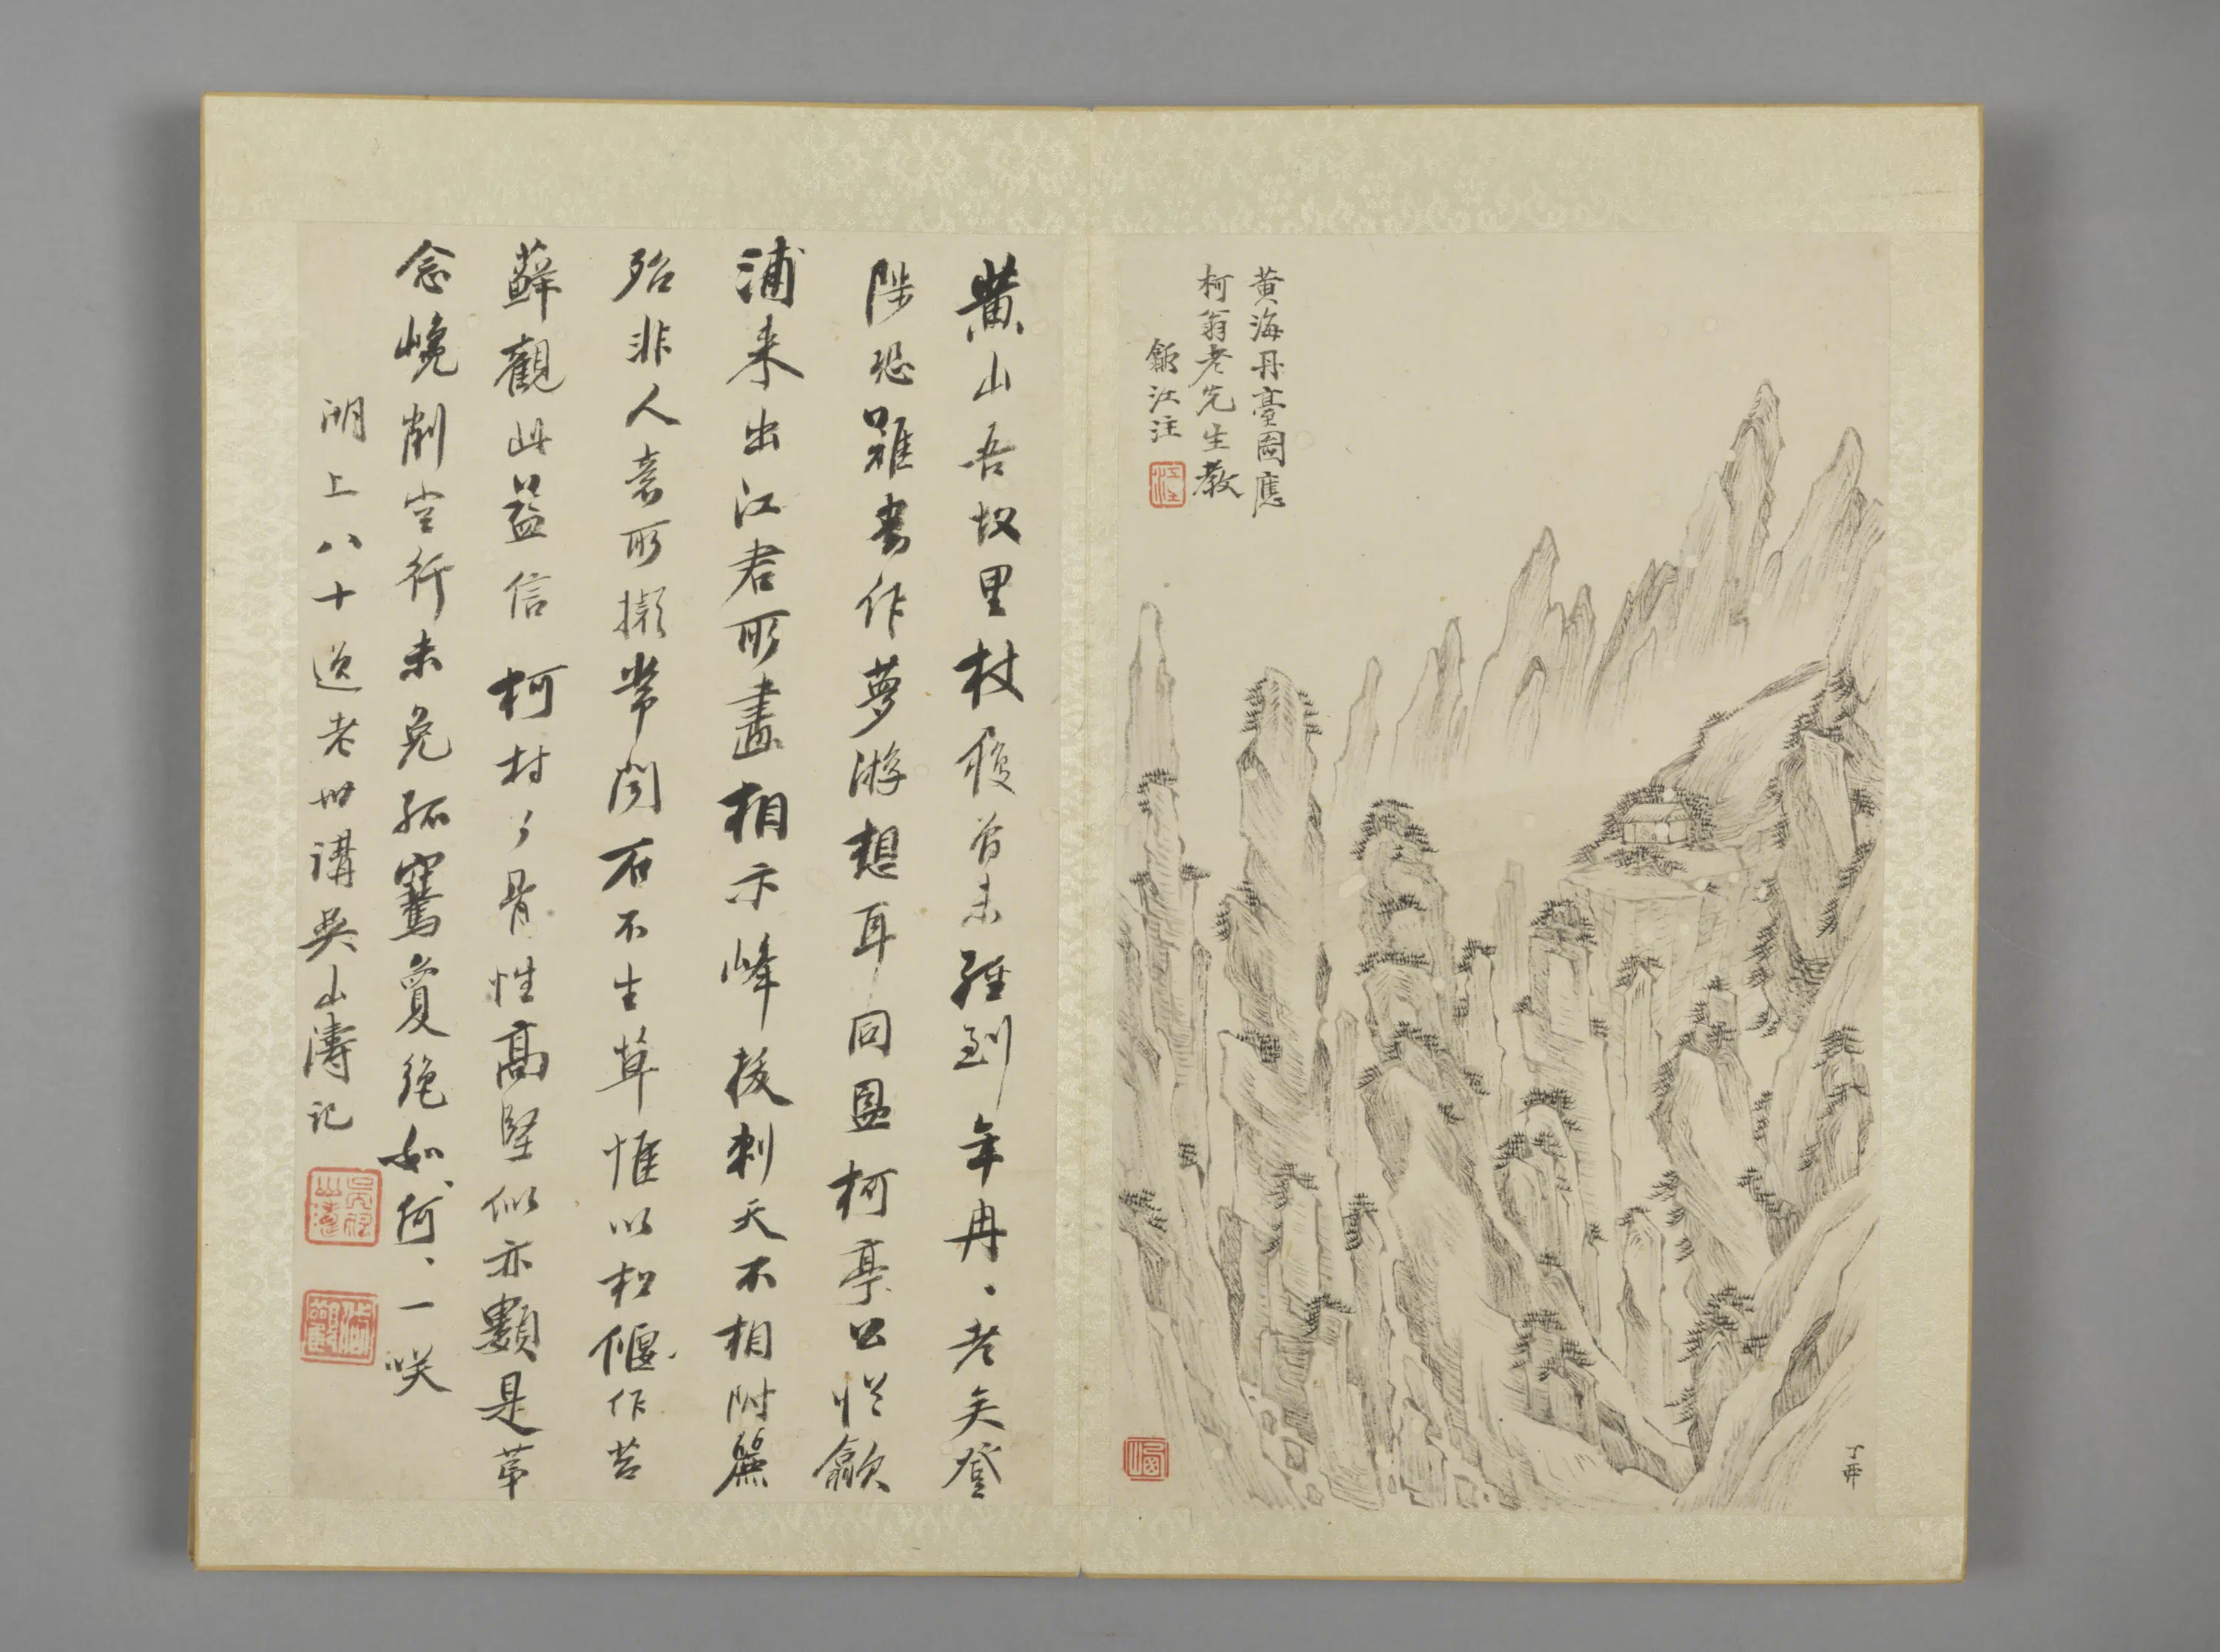 黄海丹臺圖應
柯翁老先生教
江注
江注
丁酉
黃山吾故里杖履曾未經到年冉、老矣登
陟恐難書作夢游想耳同里柯亭公從歙
浦来出江君所畫相示峰拔刺天不相附麗
殆非人意所擬常聞石不生草惟以松偃作苔
蘚觀此益信柯村了骨性高堅似亦類是第
念巉削空行未免孤騫夐絶如、何、一咲
湖上八十逸老世講吳山濤記